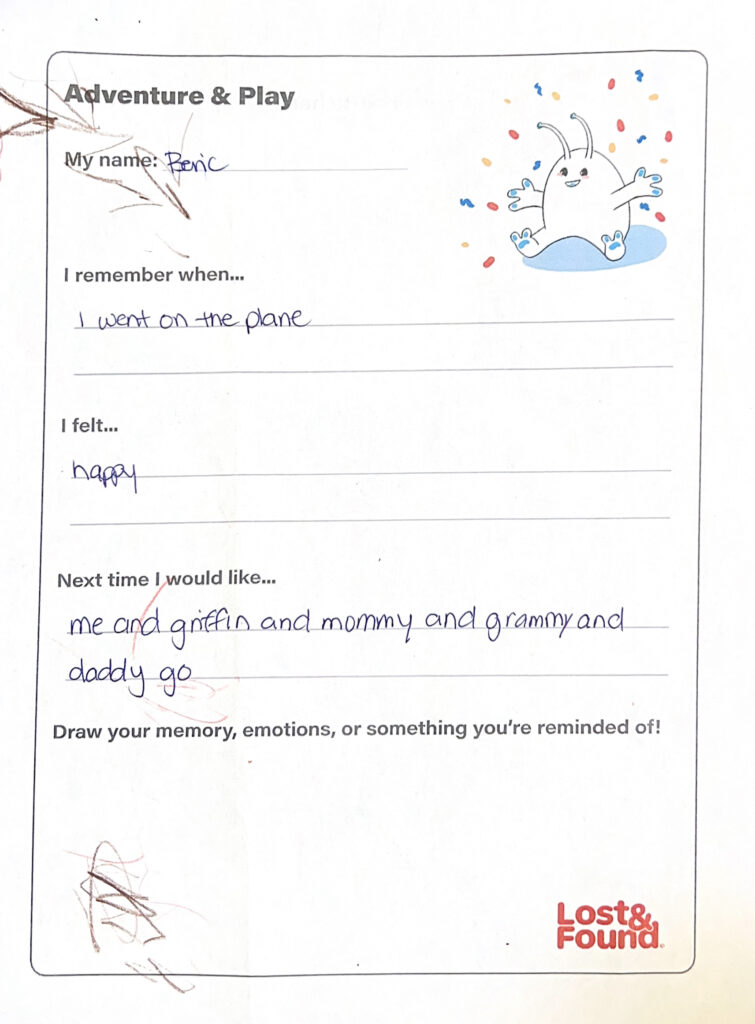 Adventure & Play
My name: Beric
I remember when...
I went on the plane
I felt...
happy
Next time I would like...
me and griffin and mommy and grammy and
daddy go
Draw your memory, emotions, or something you're reminded of!
Lost&
Found